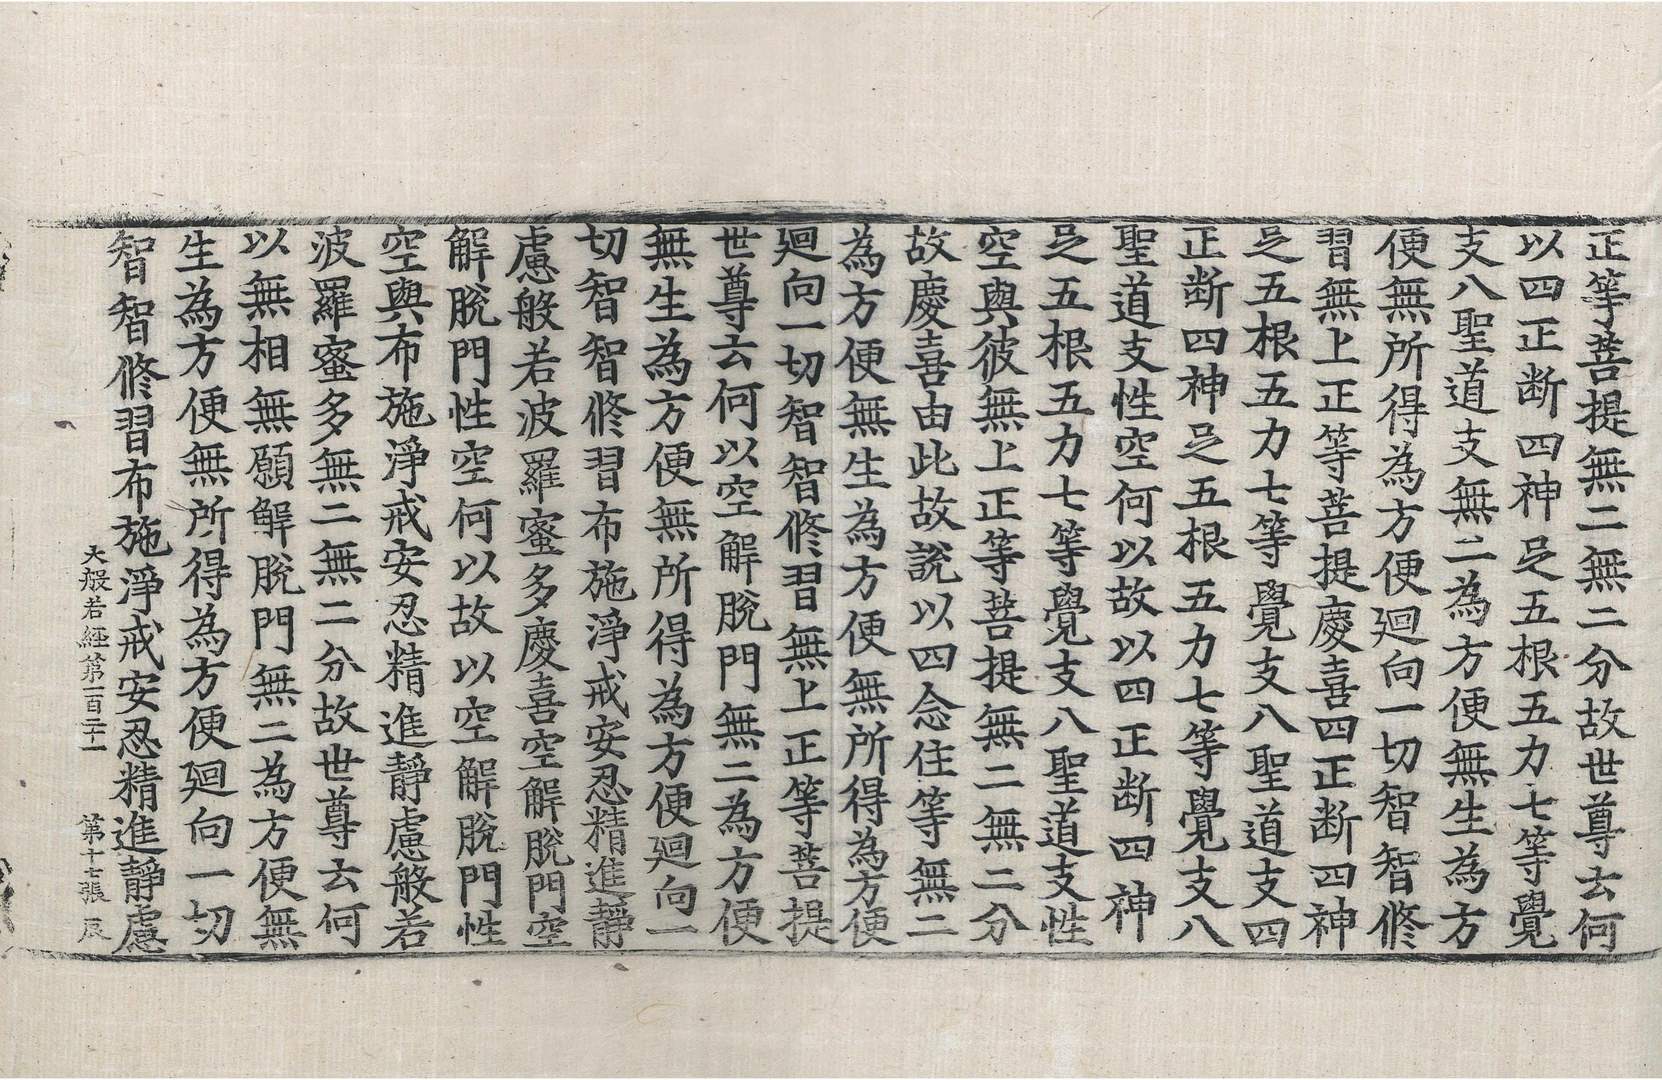 正等菩提無二無二分故世尊云何
以四正断四神足五根五力七等覺
支八聖道支無二為方便無生為方
便無所得為方便廻向一切智智修
習無上正等菩提慶喜四正断四神
足五根五力七等覺支八聖道支四
正断四神足五根五力七等覺支八
聖道支性空何以故以四正断四神
足五根五力七等覺支八聖道支性
空與彼無上正等菩提無二無二分
故慶喜由此故說以四念住等無二
為方便無生為方便無所得為方便
廻向一切智智修習無上正等菩提
世尊云何以空解脫門無二為方便
無生為方便無所得為方便廻向一
切智智修習布施淨戒安忍精進靜
慮般若波羅蜜多慶喜空解脫門空
解脫門性空何以故以空解脫門性
空與布施淨戒安忍精進靜慮般若
波羅蜜多無二無二分故世尊云何
以無相無願解脫門無二為方便無
生為方便無所得為方便廻向一切
智智修習布施淨戒安忍精進靜慮
大般若經第一百二十一 第十七張 辰